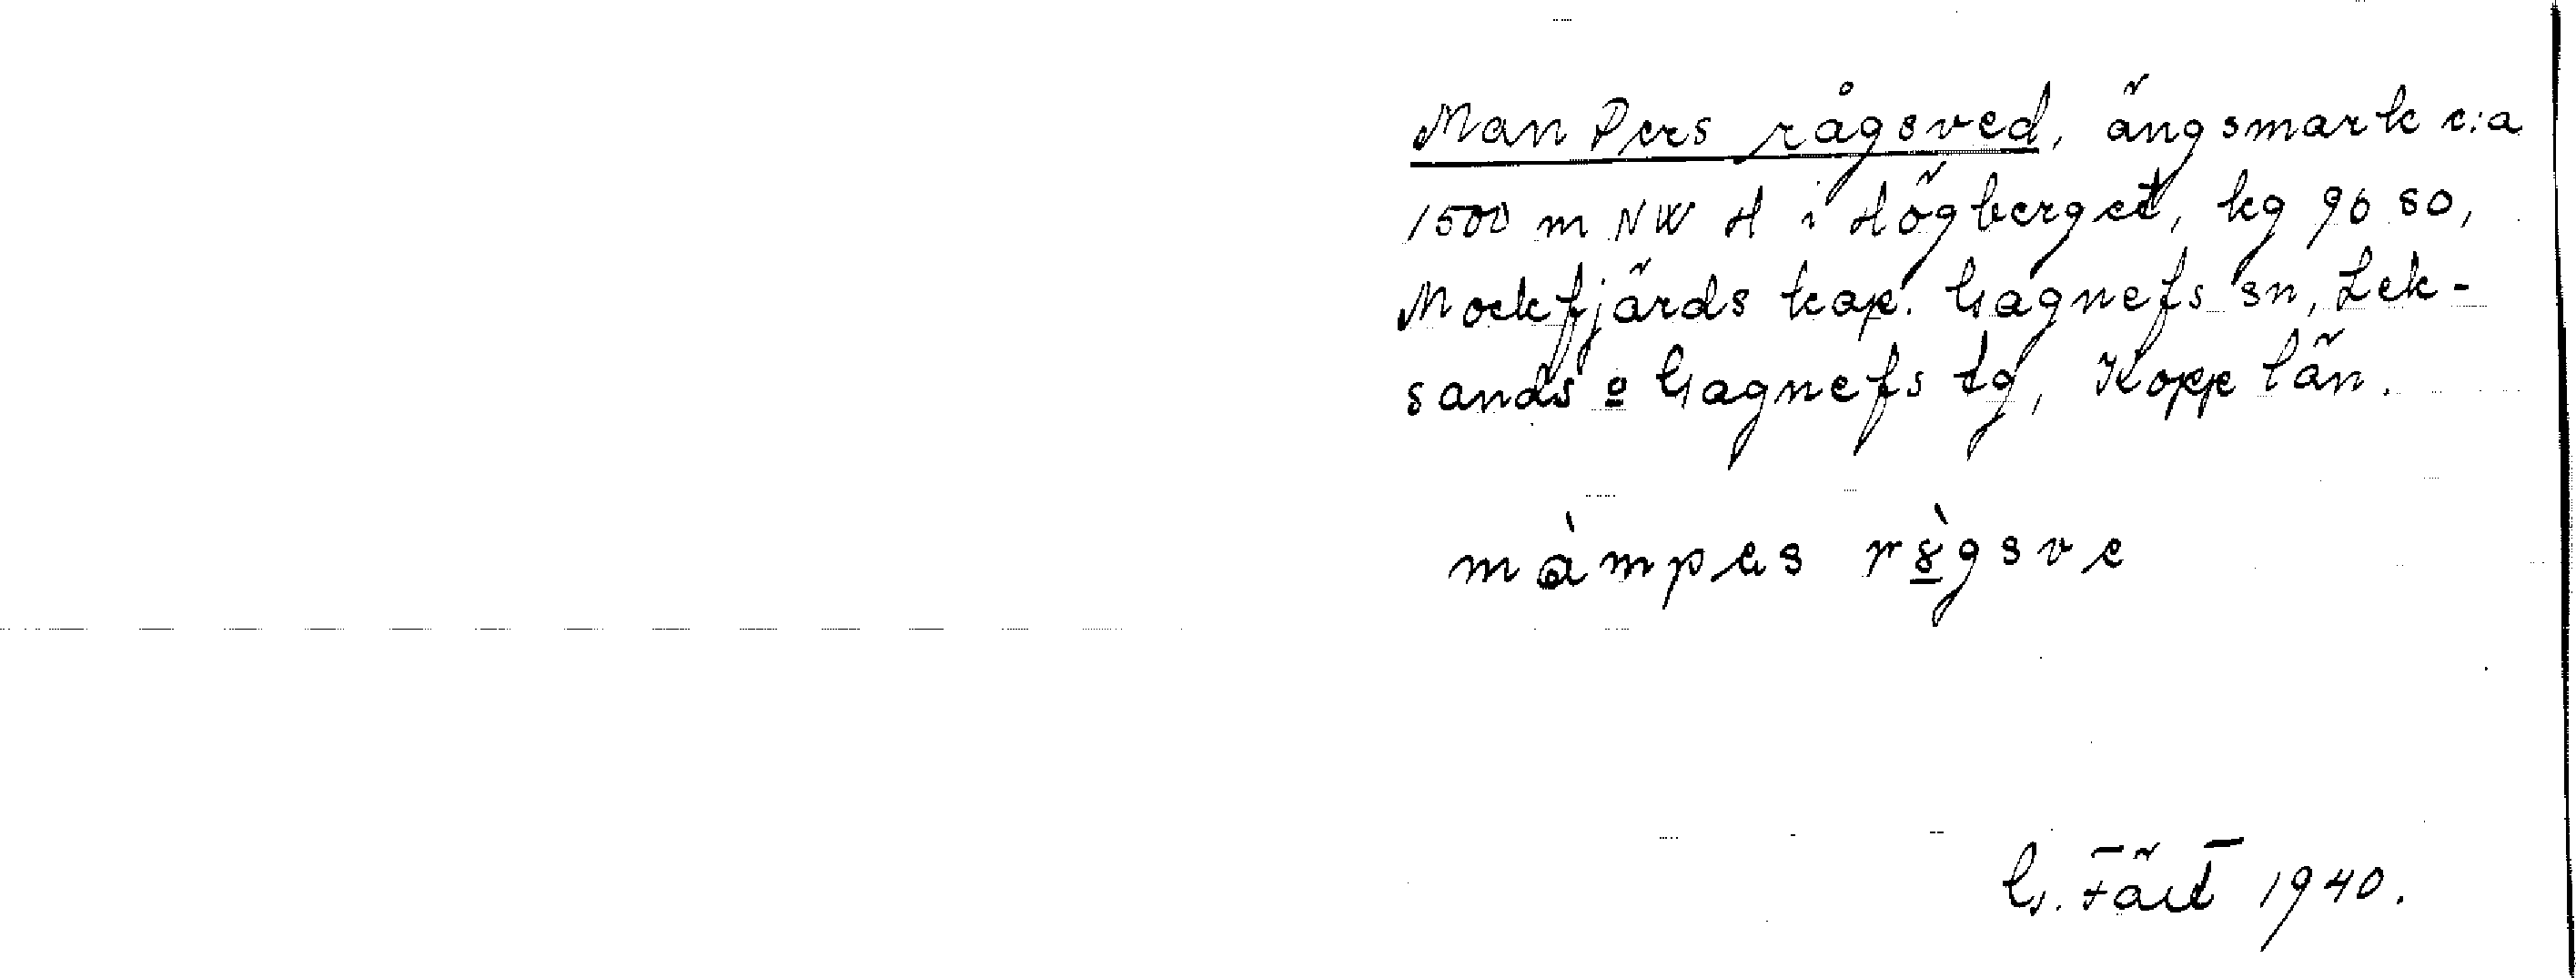 Man Pers rågsved, ängsmark c:a
1500 m NW H i Högberget, kg 96 SO,
Mockfjärds kap. Gagnefs sn, Lek-
sands o Gagnefs tg, Kopp län.
màmpɐs rẁgsve
G. Fält 1940.